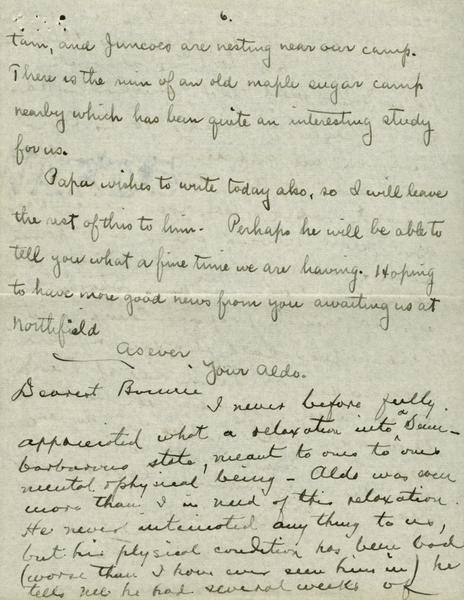 6.
tam, and Juncoes are nesting near our camp.
There is the ruin of an old maple sugar camp
nearby which has been quite an interesting study
for us.
Papa wishes to write today also, so I will leave
the rest of this to him. Perhaps he will be able to
tell you what a fine time we are having. Hoping
to have more good news from you awaiting us at
Northfield
As ever
Your Aldo.
Dearest
I never before fully
appreciated what a relaxation into a Semi-
barbarous state, meant to ones to ones
mental & physical being - Aldo was even
more than I in need of this relaxation.
He never intimated anything to us,
but his physical condition has been bad
(worse than I have ever seen him in) he
tells me he had several weeks of